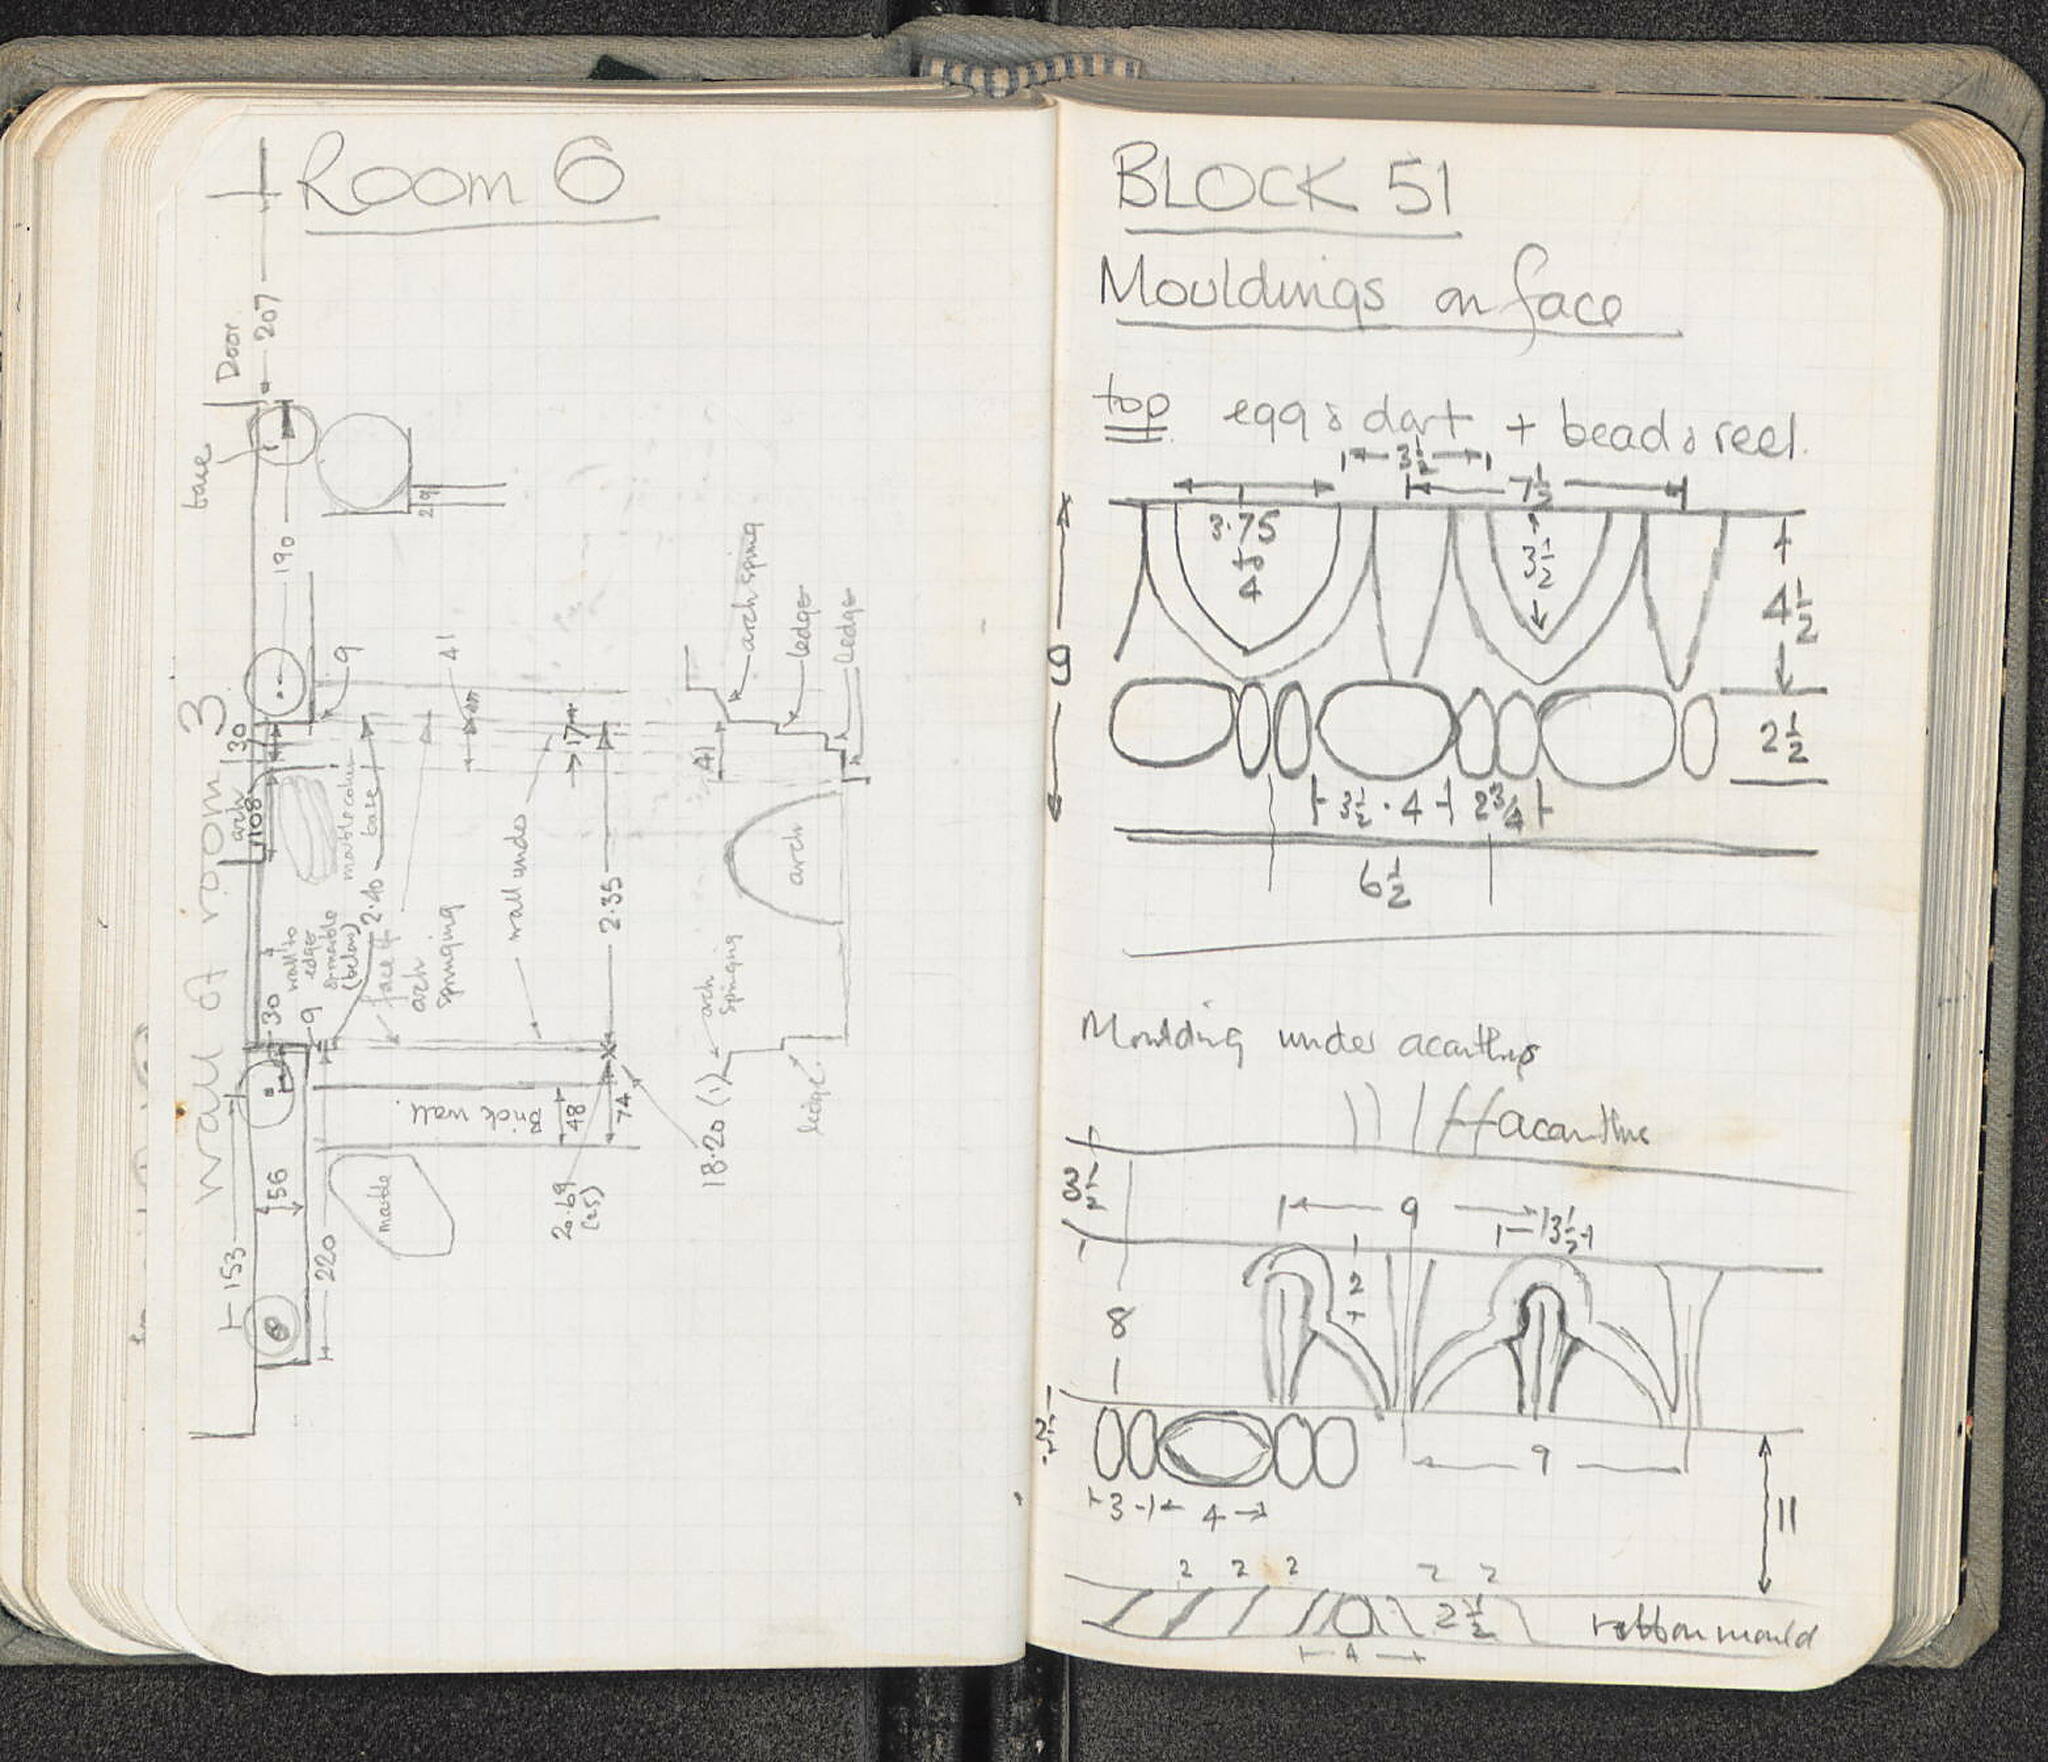 Room 6
wall of room 3
Door
207
base
190
29
9
41
30
arch
108
marble column
base
2.40
30
wall to
edge
of marble
(below)
9
face of
arch
springing
wall under
17
2.35
41
arch spring
ledge
ledge
arch
arch
springing
ledge
18.20 (1)
Brick wall.
48
74
20.69
(25)
marble
153
56
220
BLOCK 51
Mouldings on face
top egg & dart + bead & reel.
3½
7½
3.75
to
4
3½
4½
2½
3½ · 4
2¾
6½
Moulding under acanthus
acanthus
3½
9
3½
2
8
2½
9
3
4
11
2 2 2 2 2
2½
ribbon mould
4